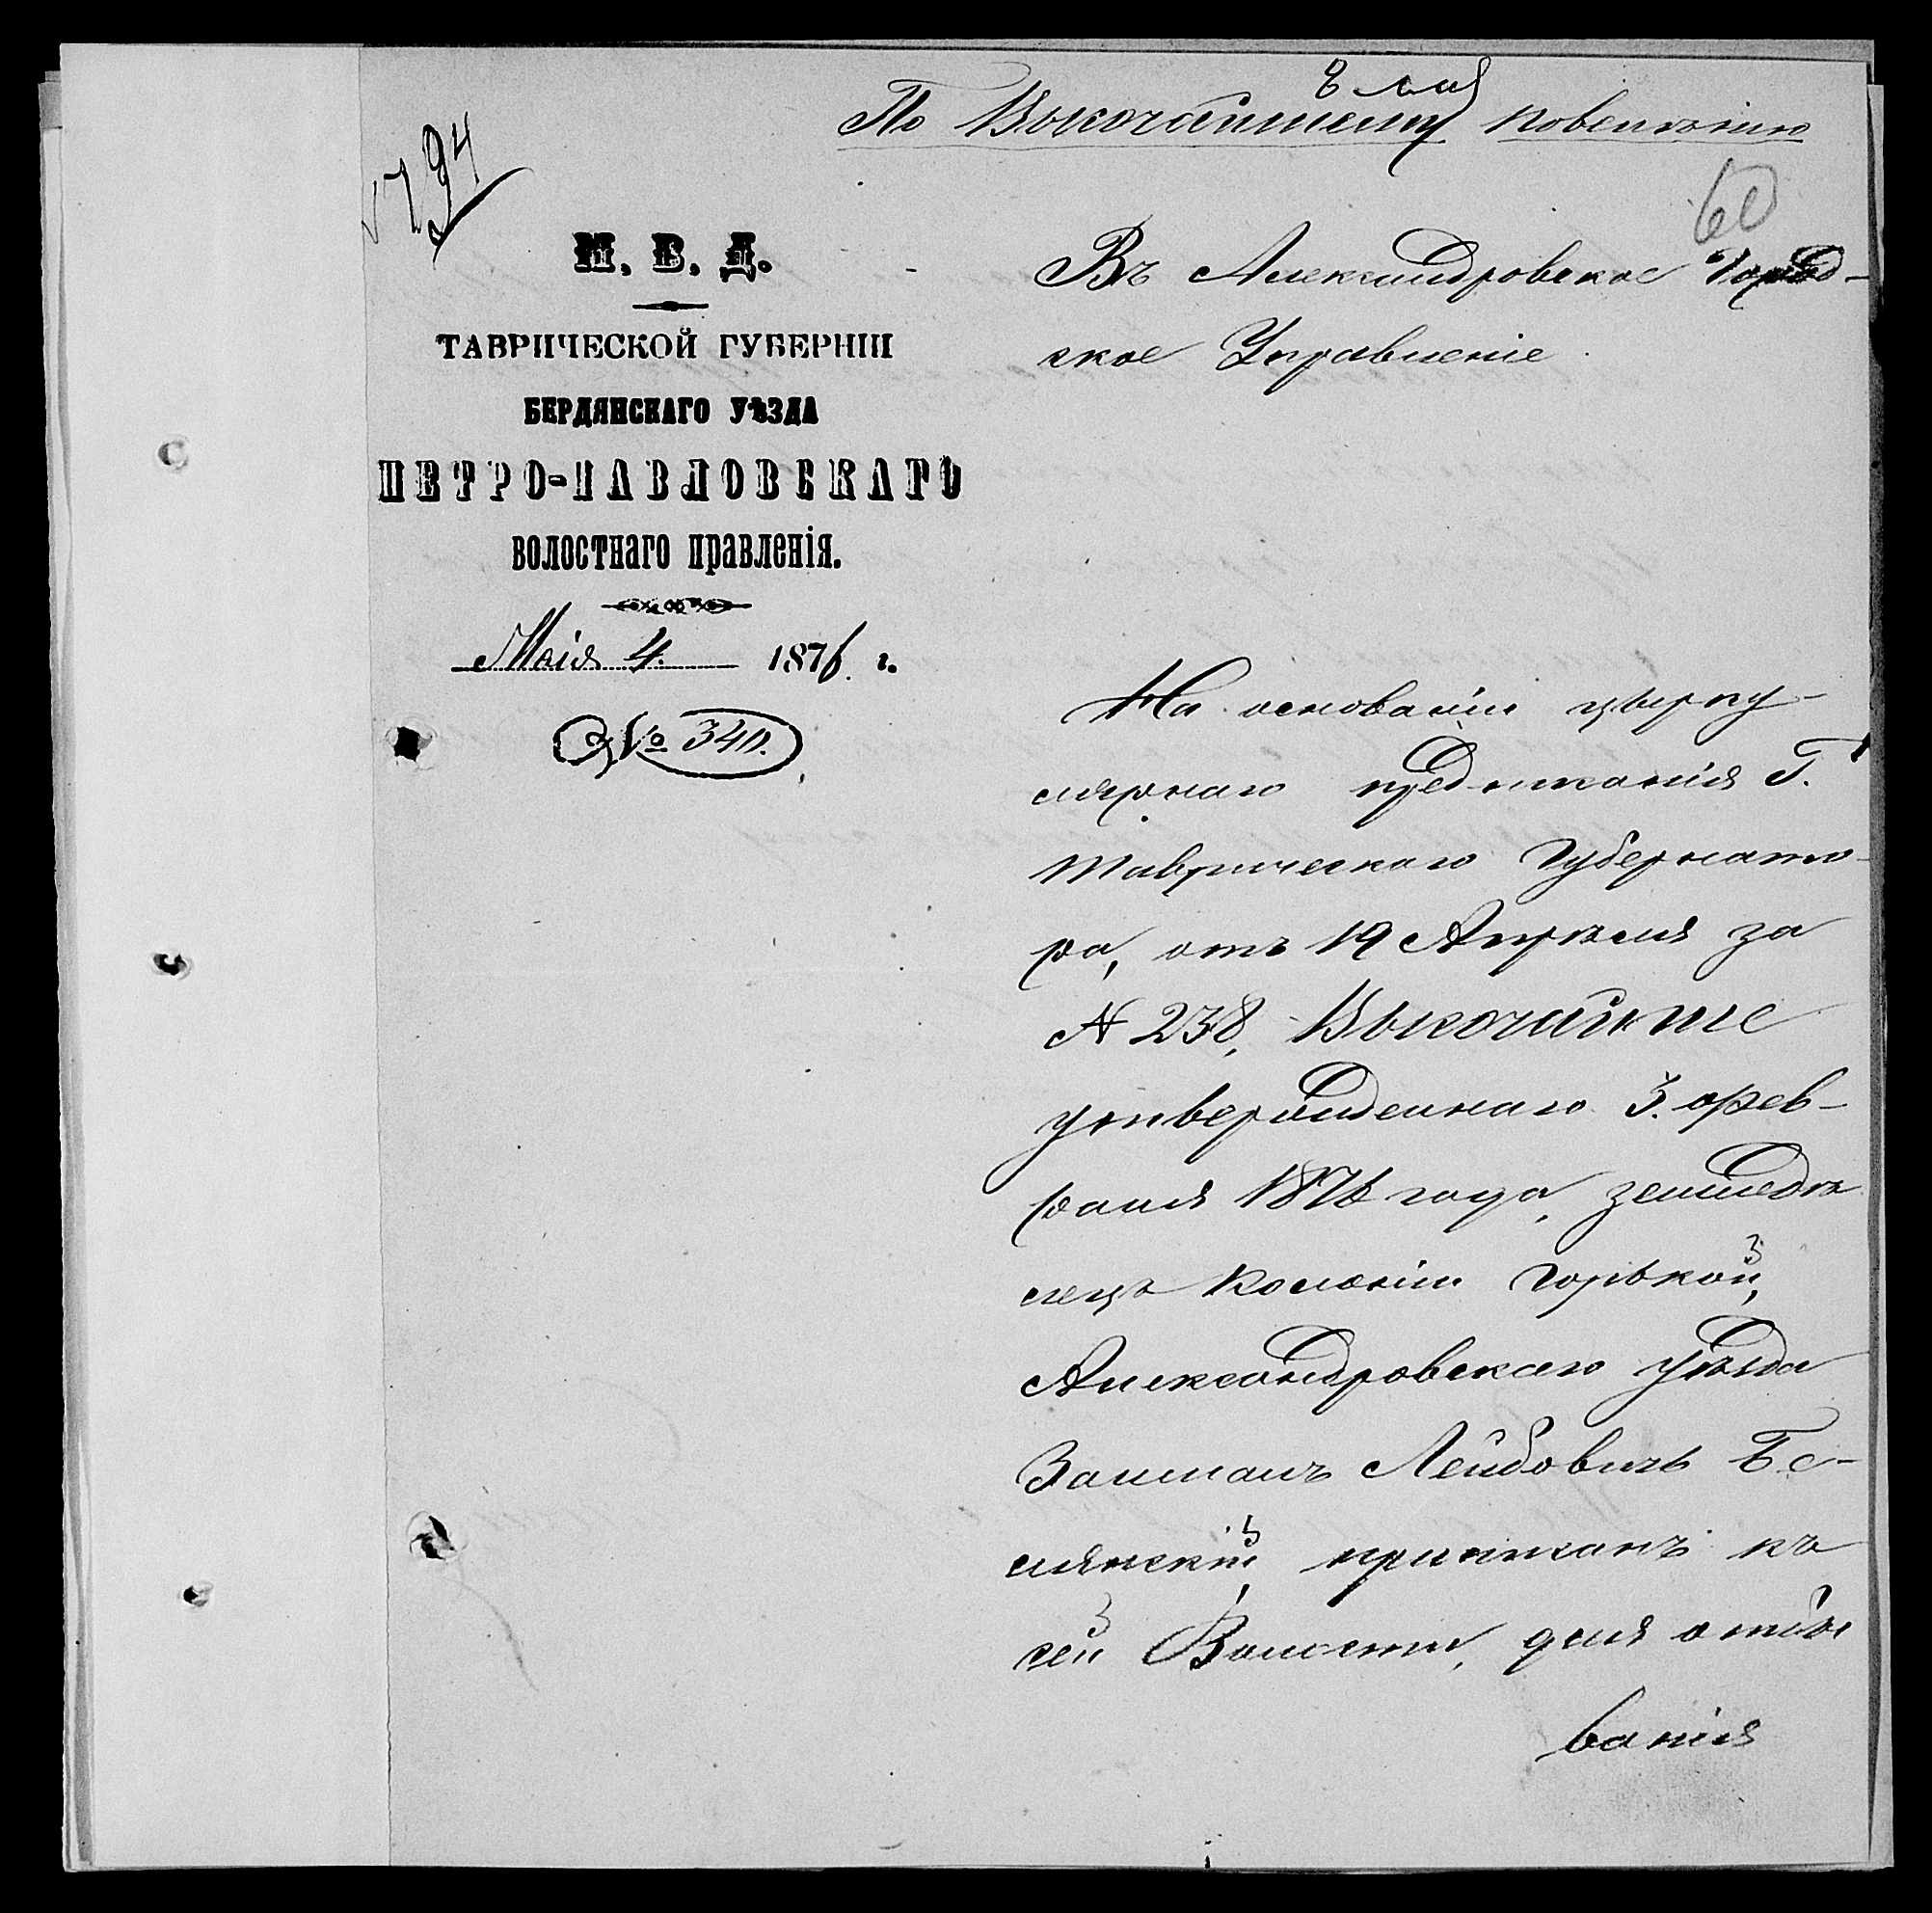 8 мая
По Высочайшему повелѣнію
794
60
М. В. Д.
ТАВРИЧЕСКОЙ ГУБЕРНІИ
БЕРДЯНСКАГО УѢЗДА
ПЕТРО-ПАВЛОВСКАГО
ВОЛОСТНАГО ПРАВЛЕНІЯ.
Маія 4. 1876 г.
№ 340.
Въ Александровское Город-
ское Управленіе
На основаніи цырку-
лярнаго предписанія Г.
Таврическаго Губернато-
ра, отъ 19 Апрѣля за
№ 238, Высочайше
утвержденнаго 3. фев-
раля 1876 года, земледѣ
лецъ Колоніи Горькой,
Александровскаго уѣзда
Залманъ Лейбовичъ Бе-
лянскій, приписанъ къ
сей Волости, для отбы
ванія